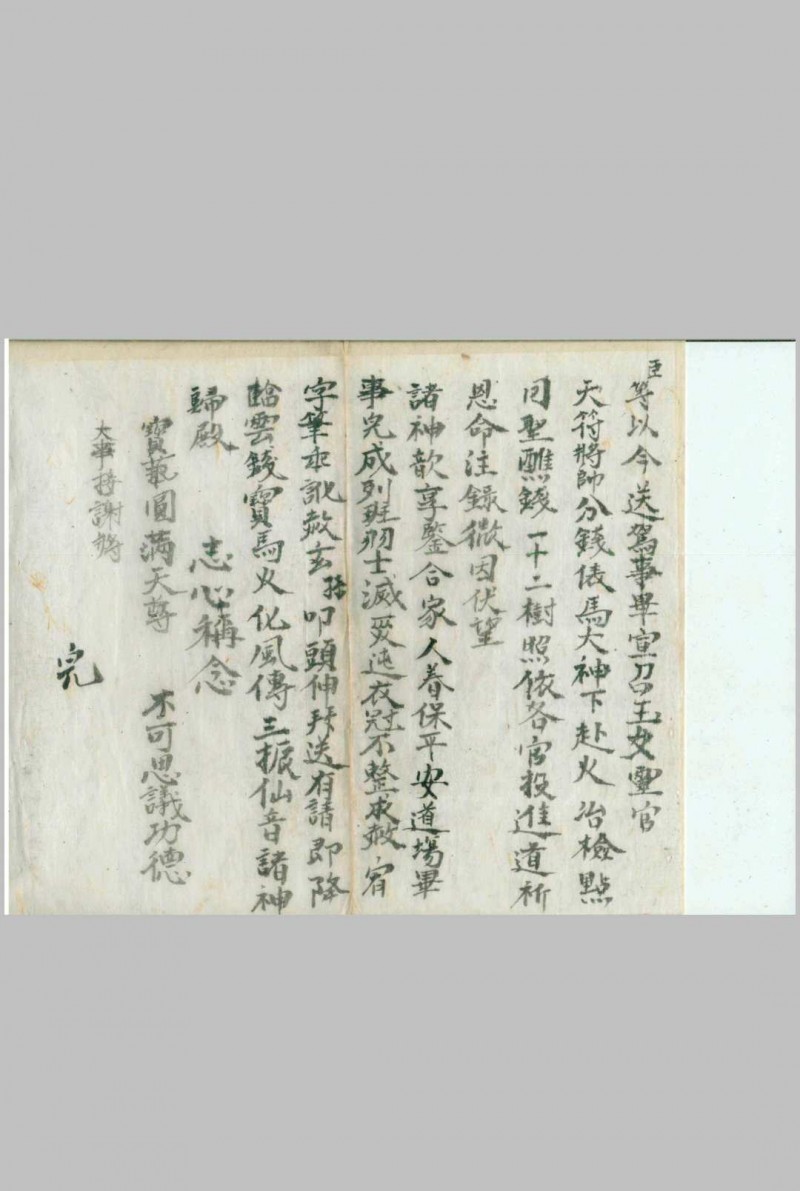 臣等以今送駕事畢宣召玉女靈官
天符將帥分錢俵馬大神下赴火治檢點
同聖醮錢一十二樹照依各官投進道祈
恩命注錄微因伏望
諸神歆享鑒合家人眷保平安道場畢
事完成列班士滅災迍衣冠不整求赦宥
字筆訛赦玄叩頭伸拜送有請即降
雲錢寶馬火化風傳三振仙音諸神
歸殿 志心稱念
寶藏圓滿天尊 不可思議功德
大事持謝將
完